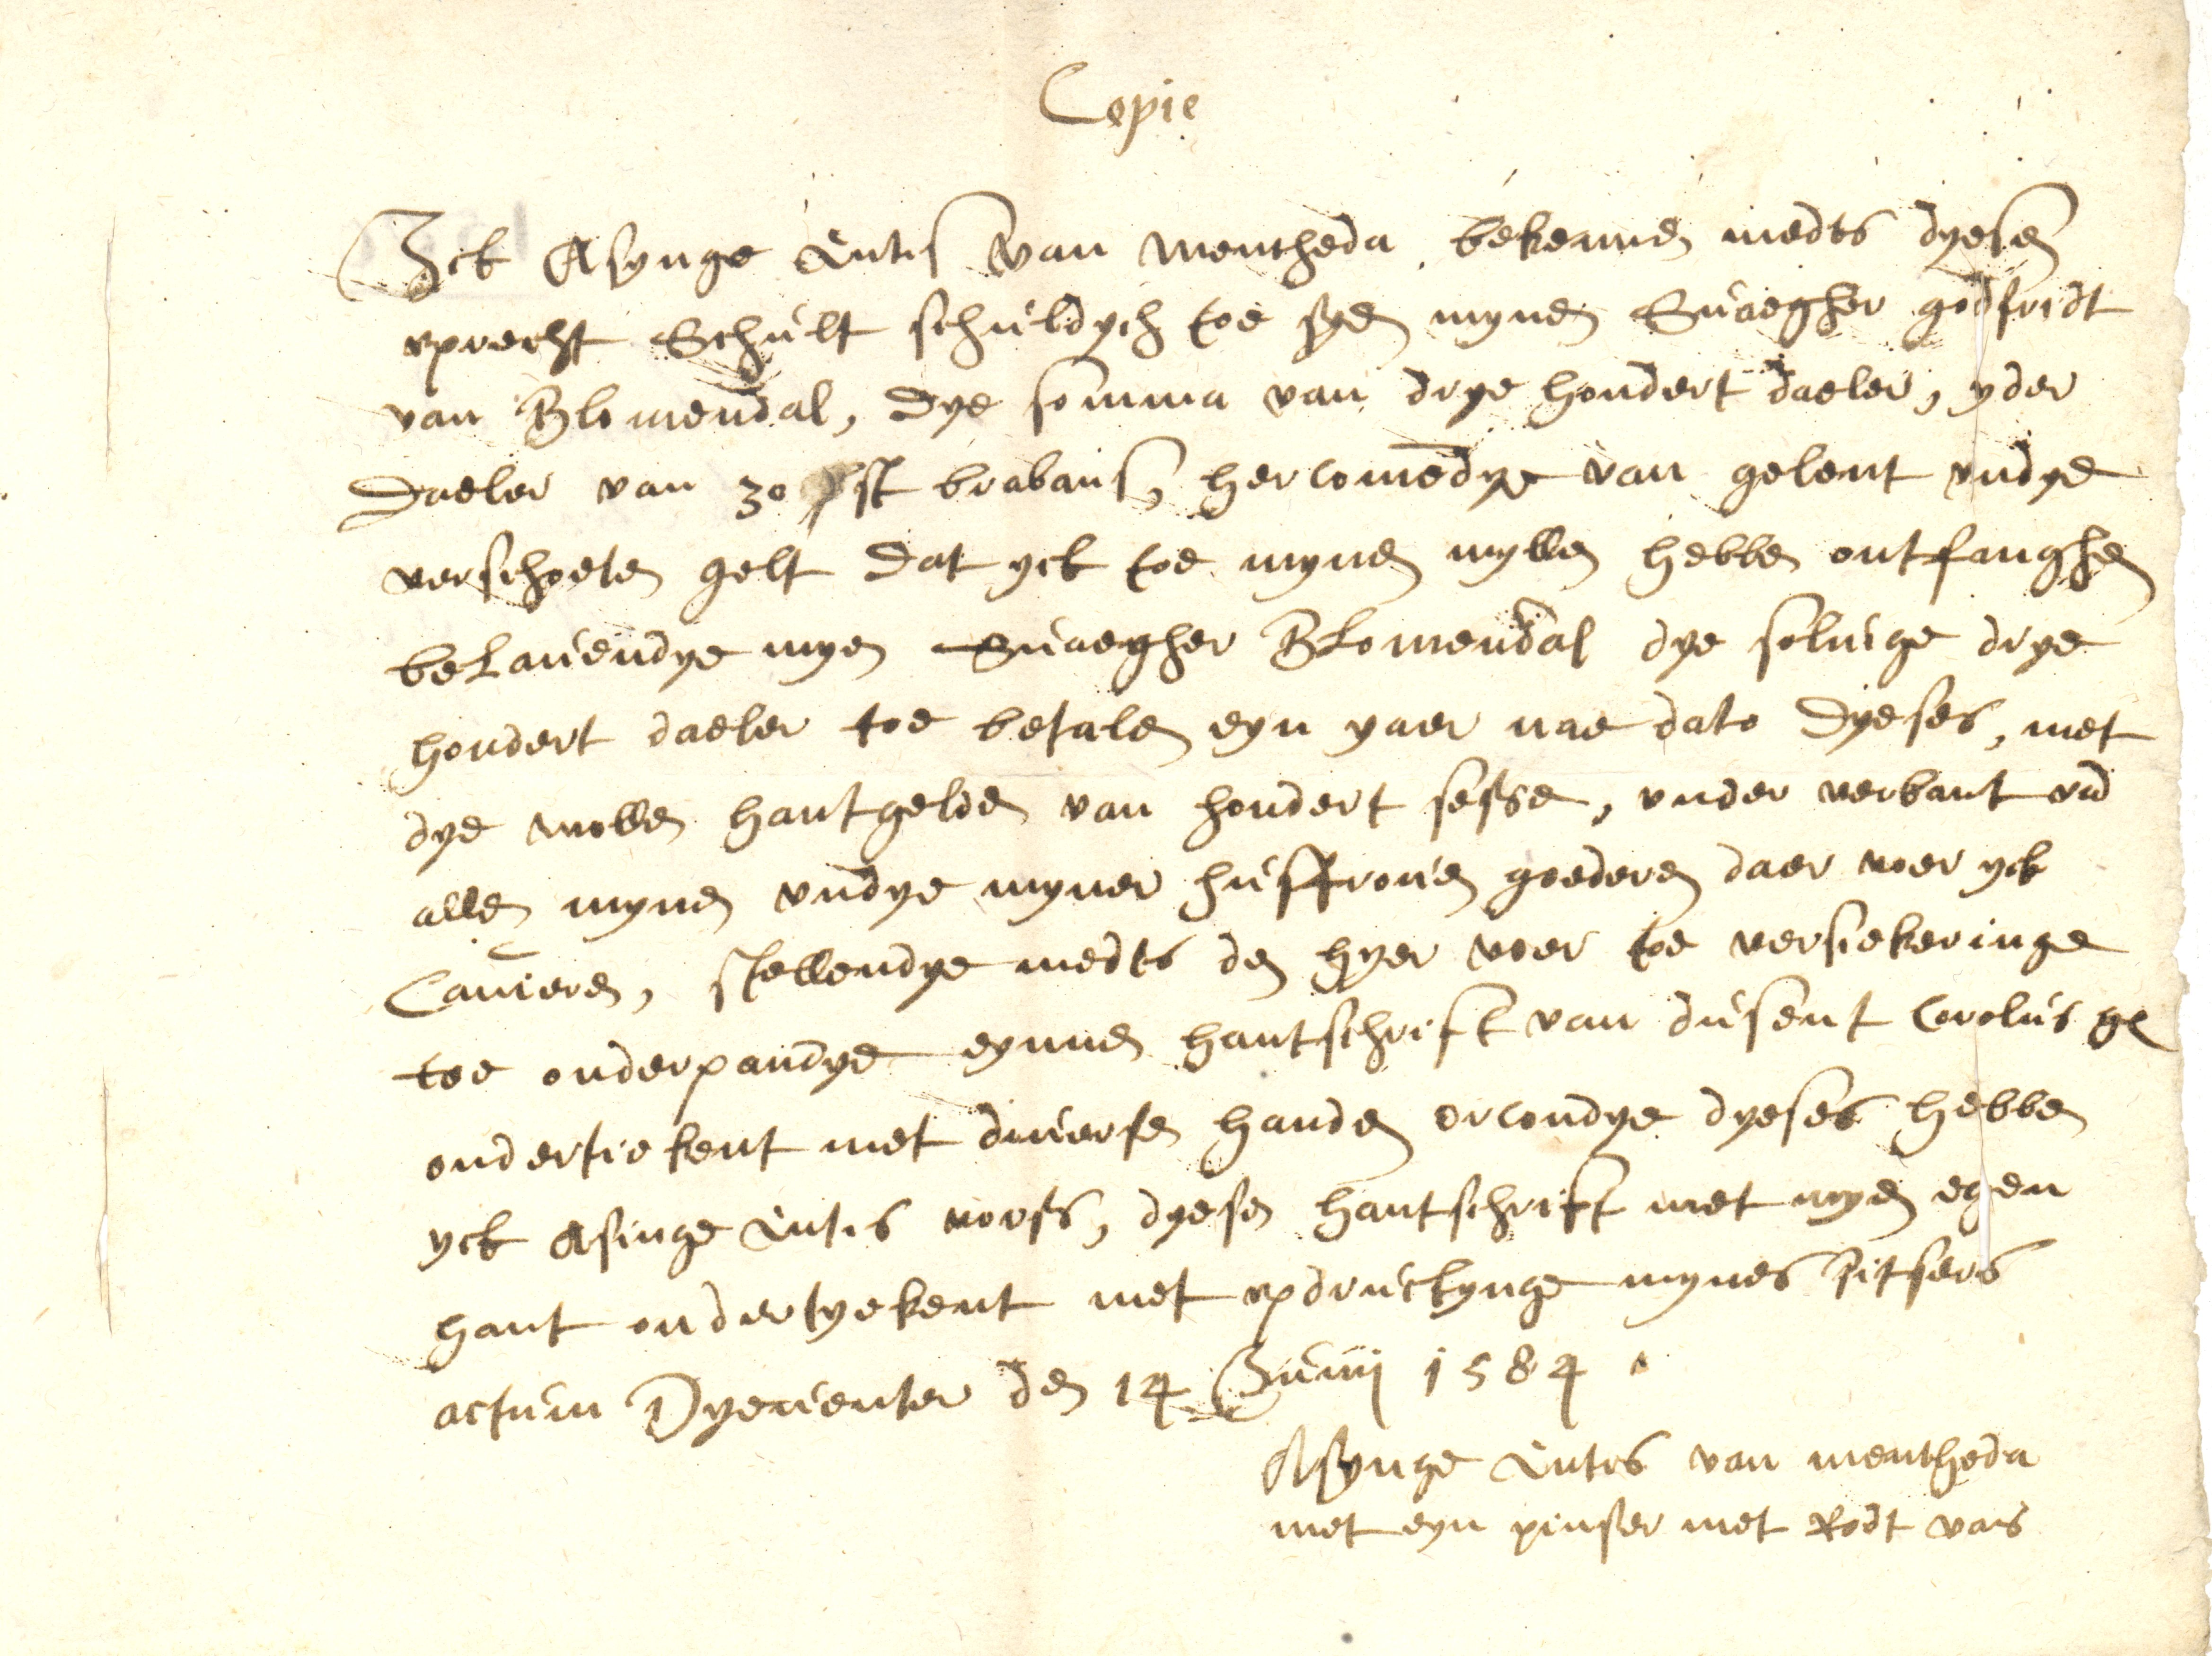 Copie
Ick Asynge Entis van Mentheda bekennen medts dyesen
oprecht Schult schuldych toe syen mynen Swaegher godfridt
van Blomendal, dye somma van drye hondert daeler, yder
daeler van 30 st brabans, hercomedye van gelent undye
verschoeten gelt dat yck toe mynen wyllen hebben ontfanghen
belauendye myen Swaegher Blomendal dye seluige drye
hondert daeler toe betalen eyn yaer nae dato dyeses, met
dye wollen hantgelden van hondert sesse, under verbant vā
allen mynen undye myner husfrouen goederen daer voer yck
Cauieren, stellendye medts den hyer voer toe versiekeringe
toe onderpandye eynnen hantschrift van dusent Corolus gl
ondertiekent met diuersen handen orcondye dyeses hebben
yck Asinge Entis vorss, dyesen hantschrift met myen egen
hant ondertyekent met updructynge mynes pitsers
actum Dyeuenter den 14 Junij 1584.
Asynge Entes van mentheda
met eyn pinser met Rodt vas